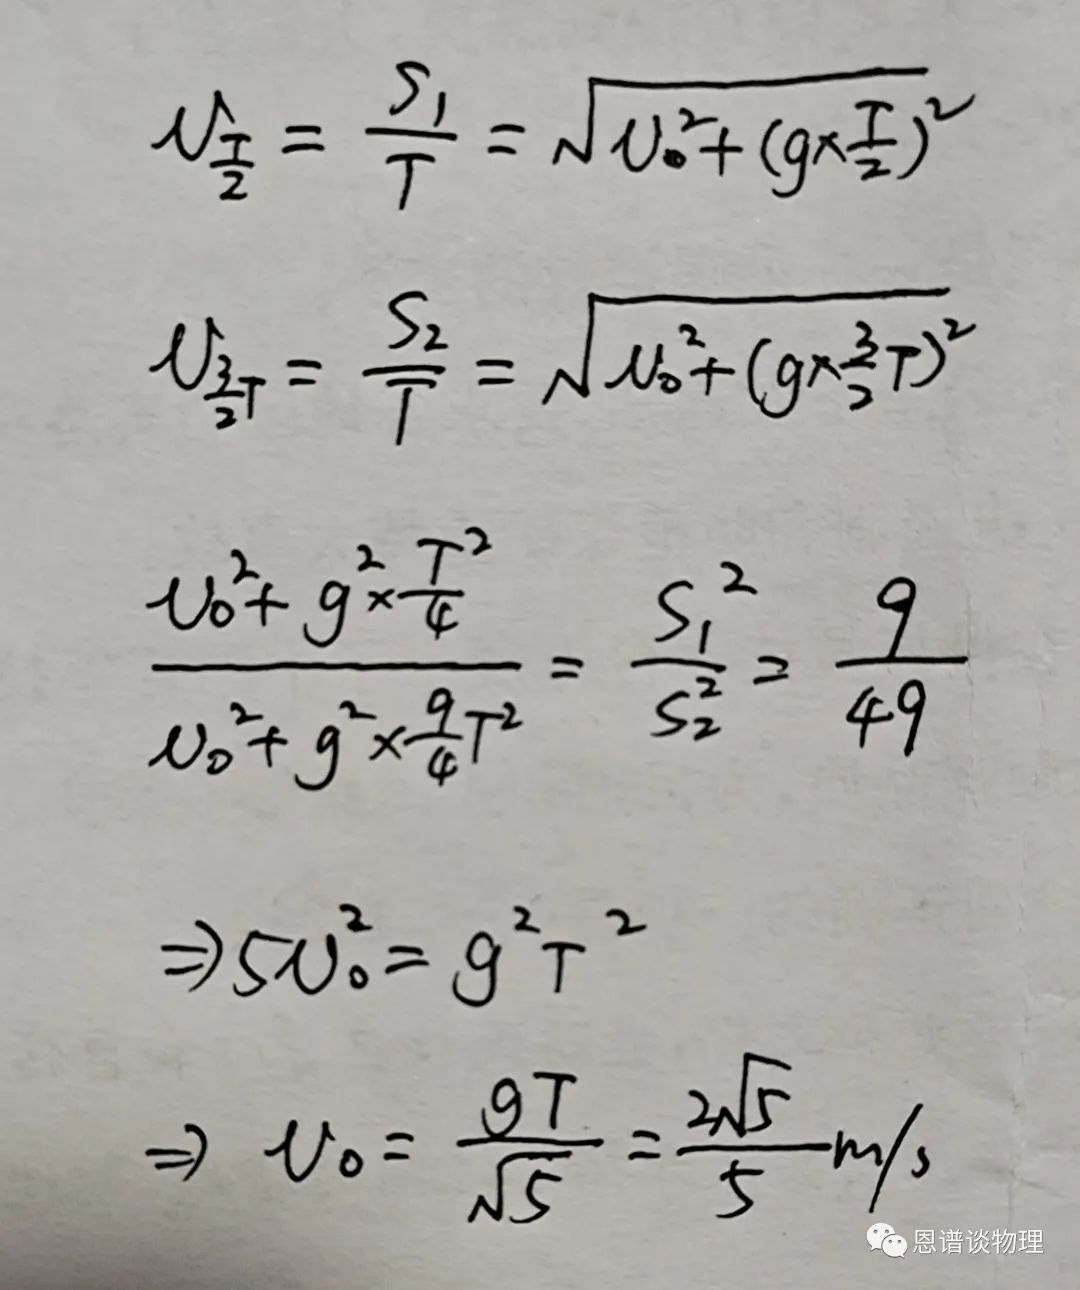 v_{T/2} = S₁/T = √(v₀² + (g×T/2)²)
v_{3/2 T} = S₂/T = √(v₀² + (g×3/2 T)²)
(v₀² + g²×T²/4)/(v₀² + g²×9/4 T²) = S₁²/S₂² = 9/49
⇒ 5v₀² = g²T²
⇒ v₀ = gT/√5 = 2√5/5 m/s
恩谱谈物理